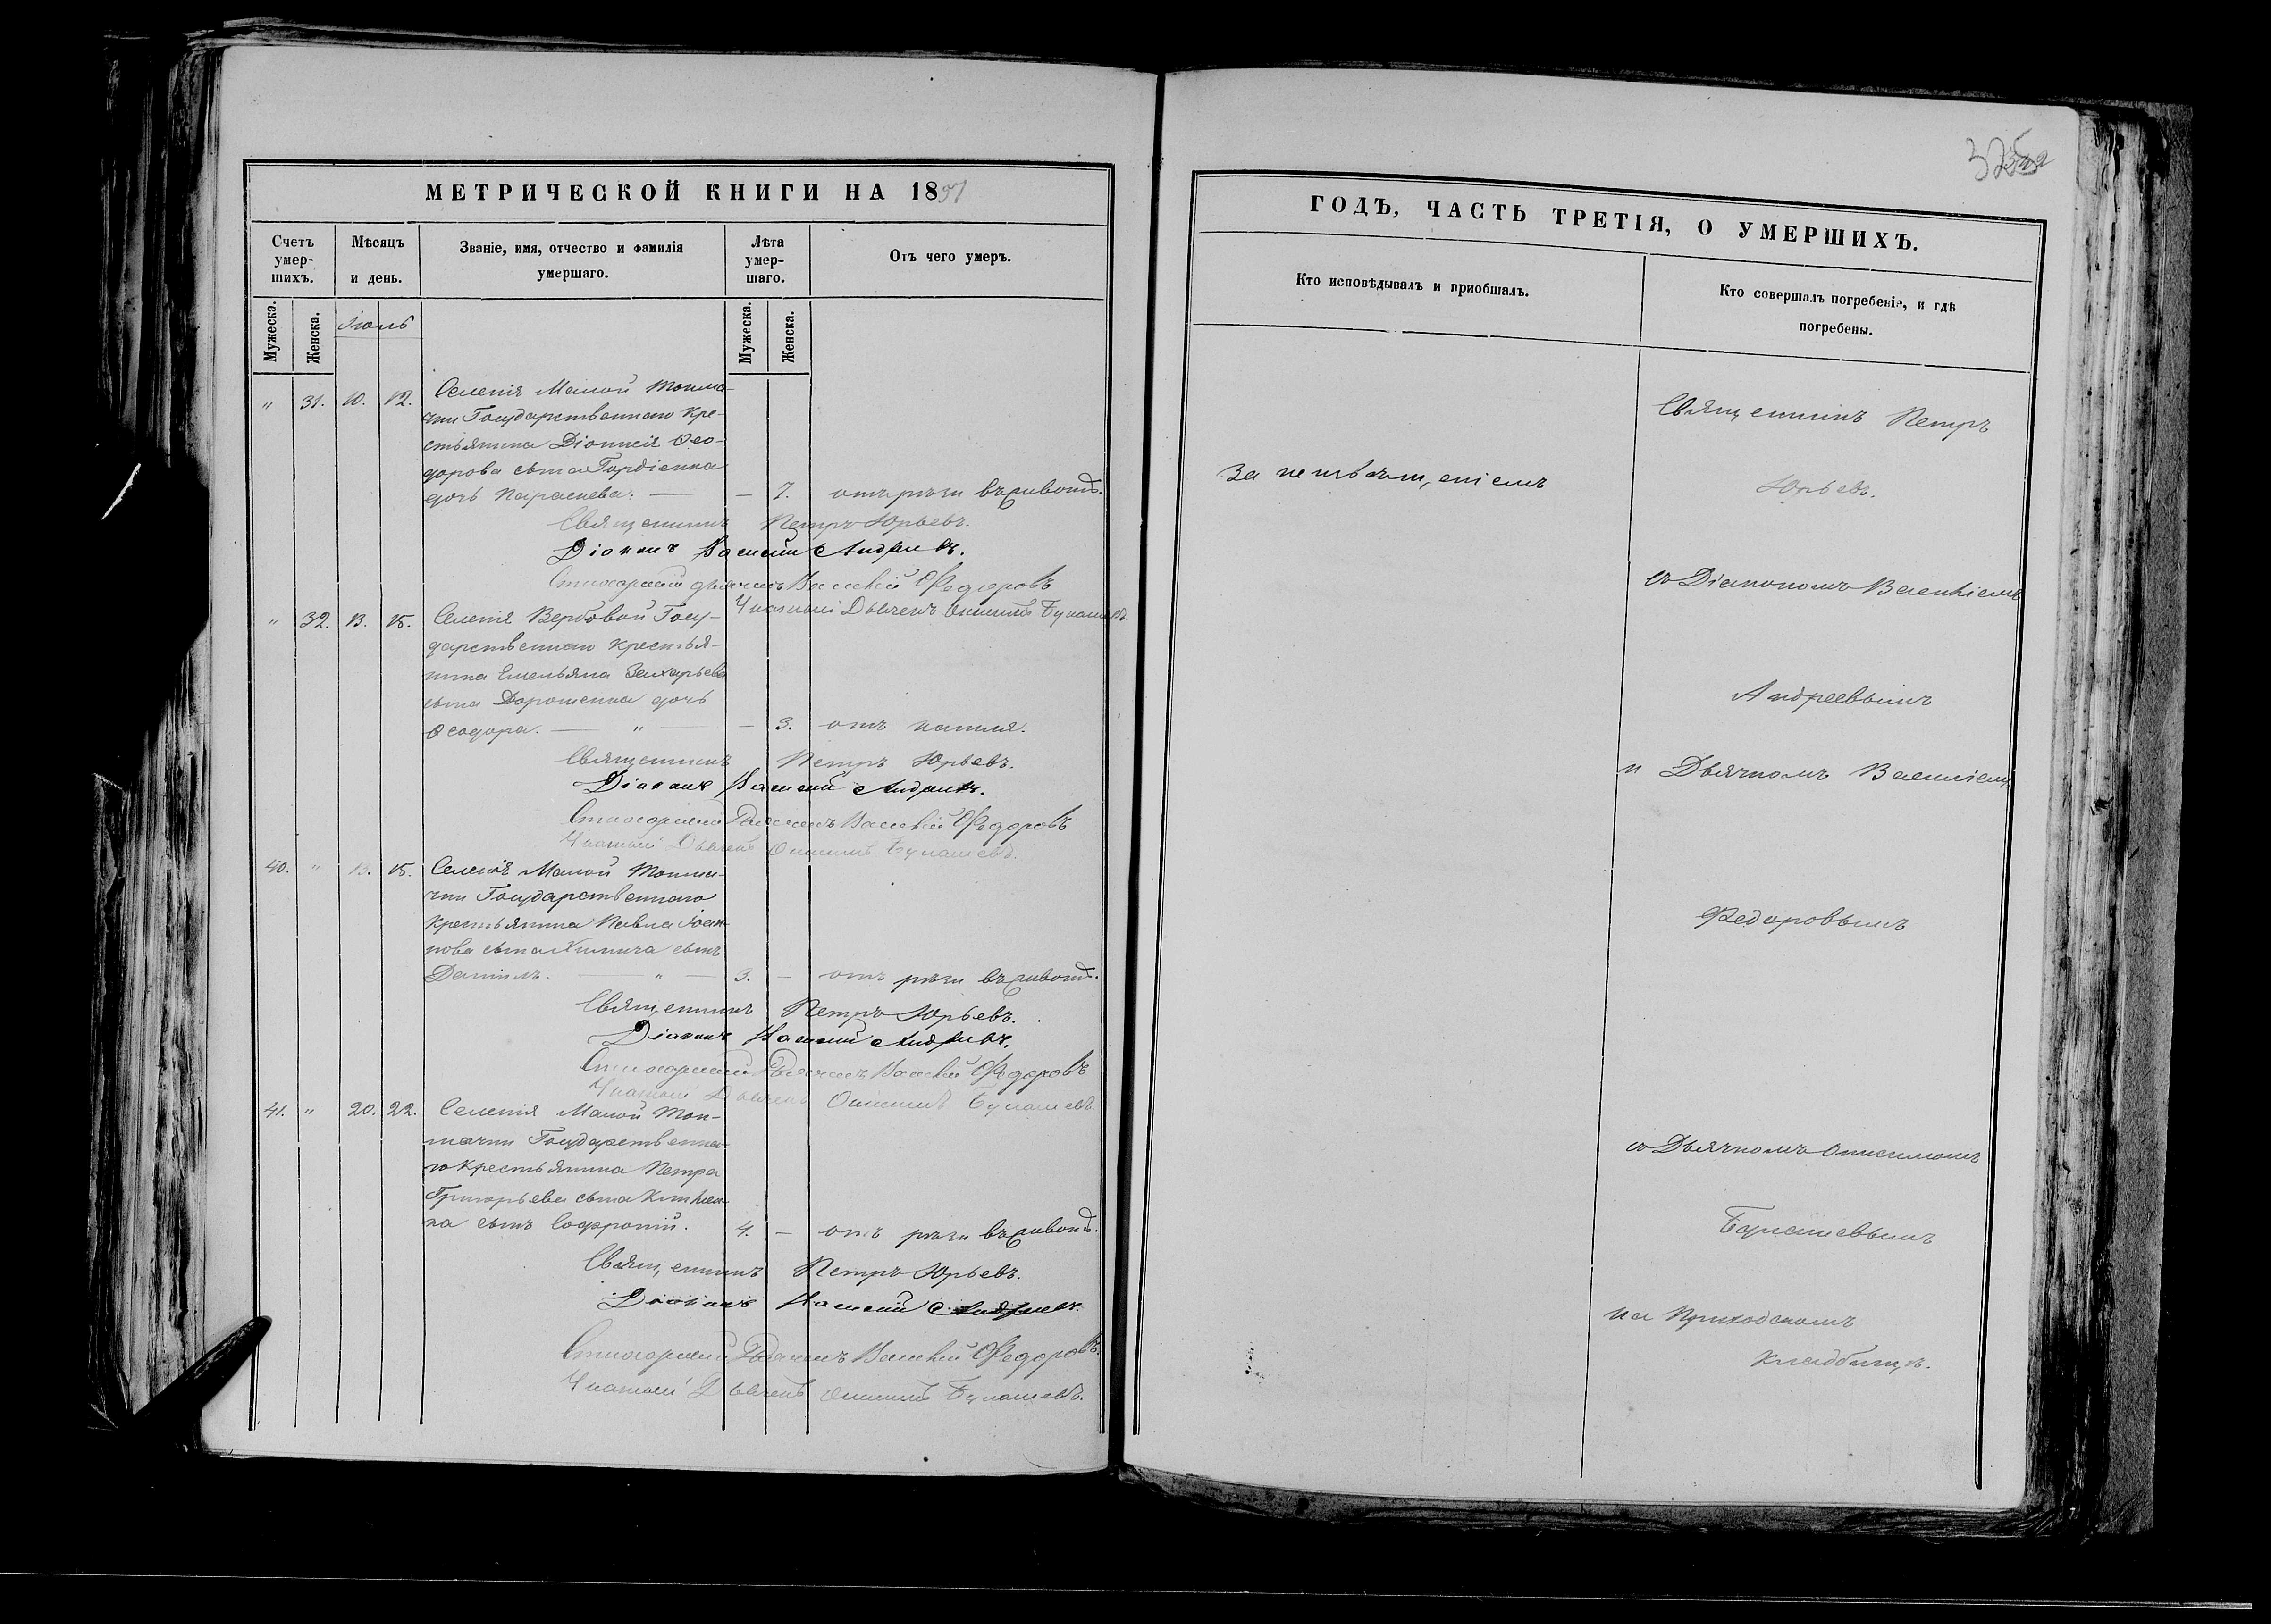 МЕТРИЧЕСКОЙ КНИГИ НА 18
Счетъ умер-шихъ.
Мѣсяцъ и день.
Званіе, имя, отчество и фамилія умершаго.
Лѣта умер-шаго.
Отъ чего умеръ.
Мужеска. Женска. Іюль Мужеска. Женска.
" 31. 10. 12. Селенія Малой Токма-
чки Государственнаго кре-
стьянина Діонисія Ѳео-
дорова сына Гордіенка
дочь Параскева. — — 7. отъ рѣзи въ животѣ.
Священникъ Петръ Юрьевъ.
Діаконъ Василій Андреевъ.
Стихарный дьячекъ Василій Федоровъ
Дьячекъ Онисимъ
" 32. 13. 15. Селенія Вербовой Госу-
дарственнаго крестья-
нина Емельяна Захарьева
сына Дорошенка дочь
Ѳеодора. — " — — 3. отъ кашля.
Священникъ Петръ Юрьевъ.
Діаконъ Василій Андреевъ.
Стихарный Дьячекъ Василій Федоровъ
Дьячекъ Онисимъ
40. " 13. 15. Селенія Малой Токма-
чки Государственнаго
крестьянина Павла Іоан-
нова сына сынъ
Даніилъ. — " — 3. — отъ рѣзи въ животѣ.
Священникъ Петръ Юрьевъ.
Діаконъ Василій Андреевъ.
Стихарный Дьячекъ Василій Федоровъ
Дьячекъ Онисимъ
41. " 20. 22. Селенія Малой Ток-
мачки Государственна-
го крестьянина Петра
Григорьева сына
ка сынъ Софроній. 4. — отъ рѣзи въ животѣ.
Священникъ Петръ Юрьевъ.
Діаконъ Василій Андреевъ.
Стихарный Дьячекъ Василій Федоровъ.
Дьячекъ Онисимъ
ГОДЪ, ЧАСТЬ ТРЕТІЯ, О УМЕРШИХЪ.
Кто исповѣдывалъ и пріобщалъ.
Кто совершалъ погребеніе, и гдѣ погребены.
Священникъ Петръ
Юрьевъ.
съ Діакономъ Василіемъ
Андреевымъ
и Дьячкомъ Василіемъ
Федоровымъ
съ Дьячкомъ Онисимомъ
на Приходскомъ
кладбищѣ.